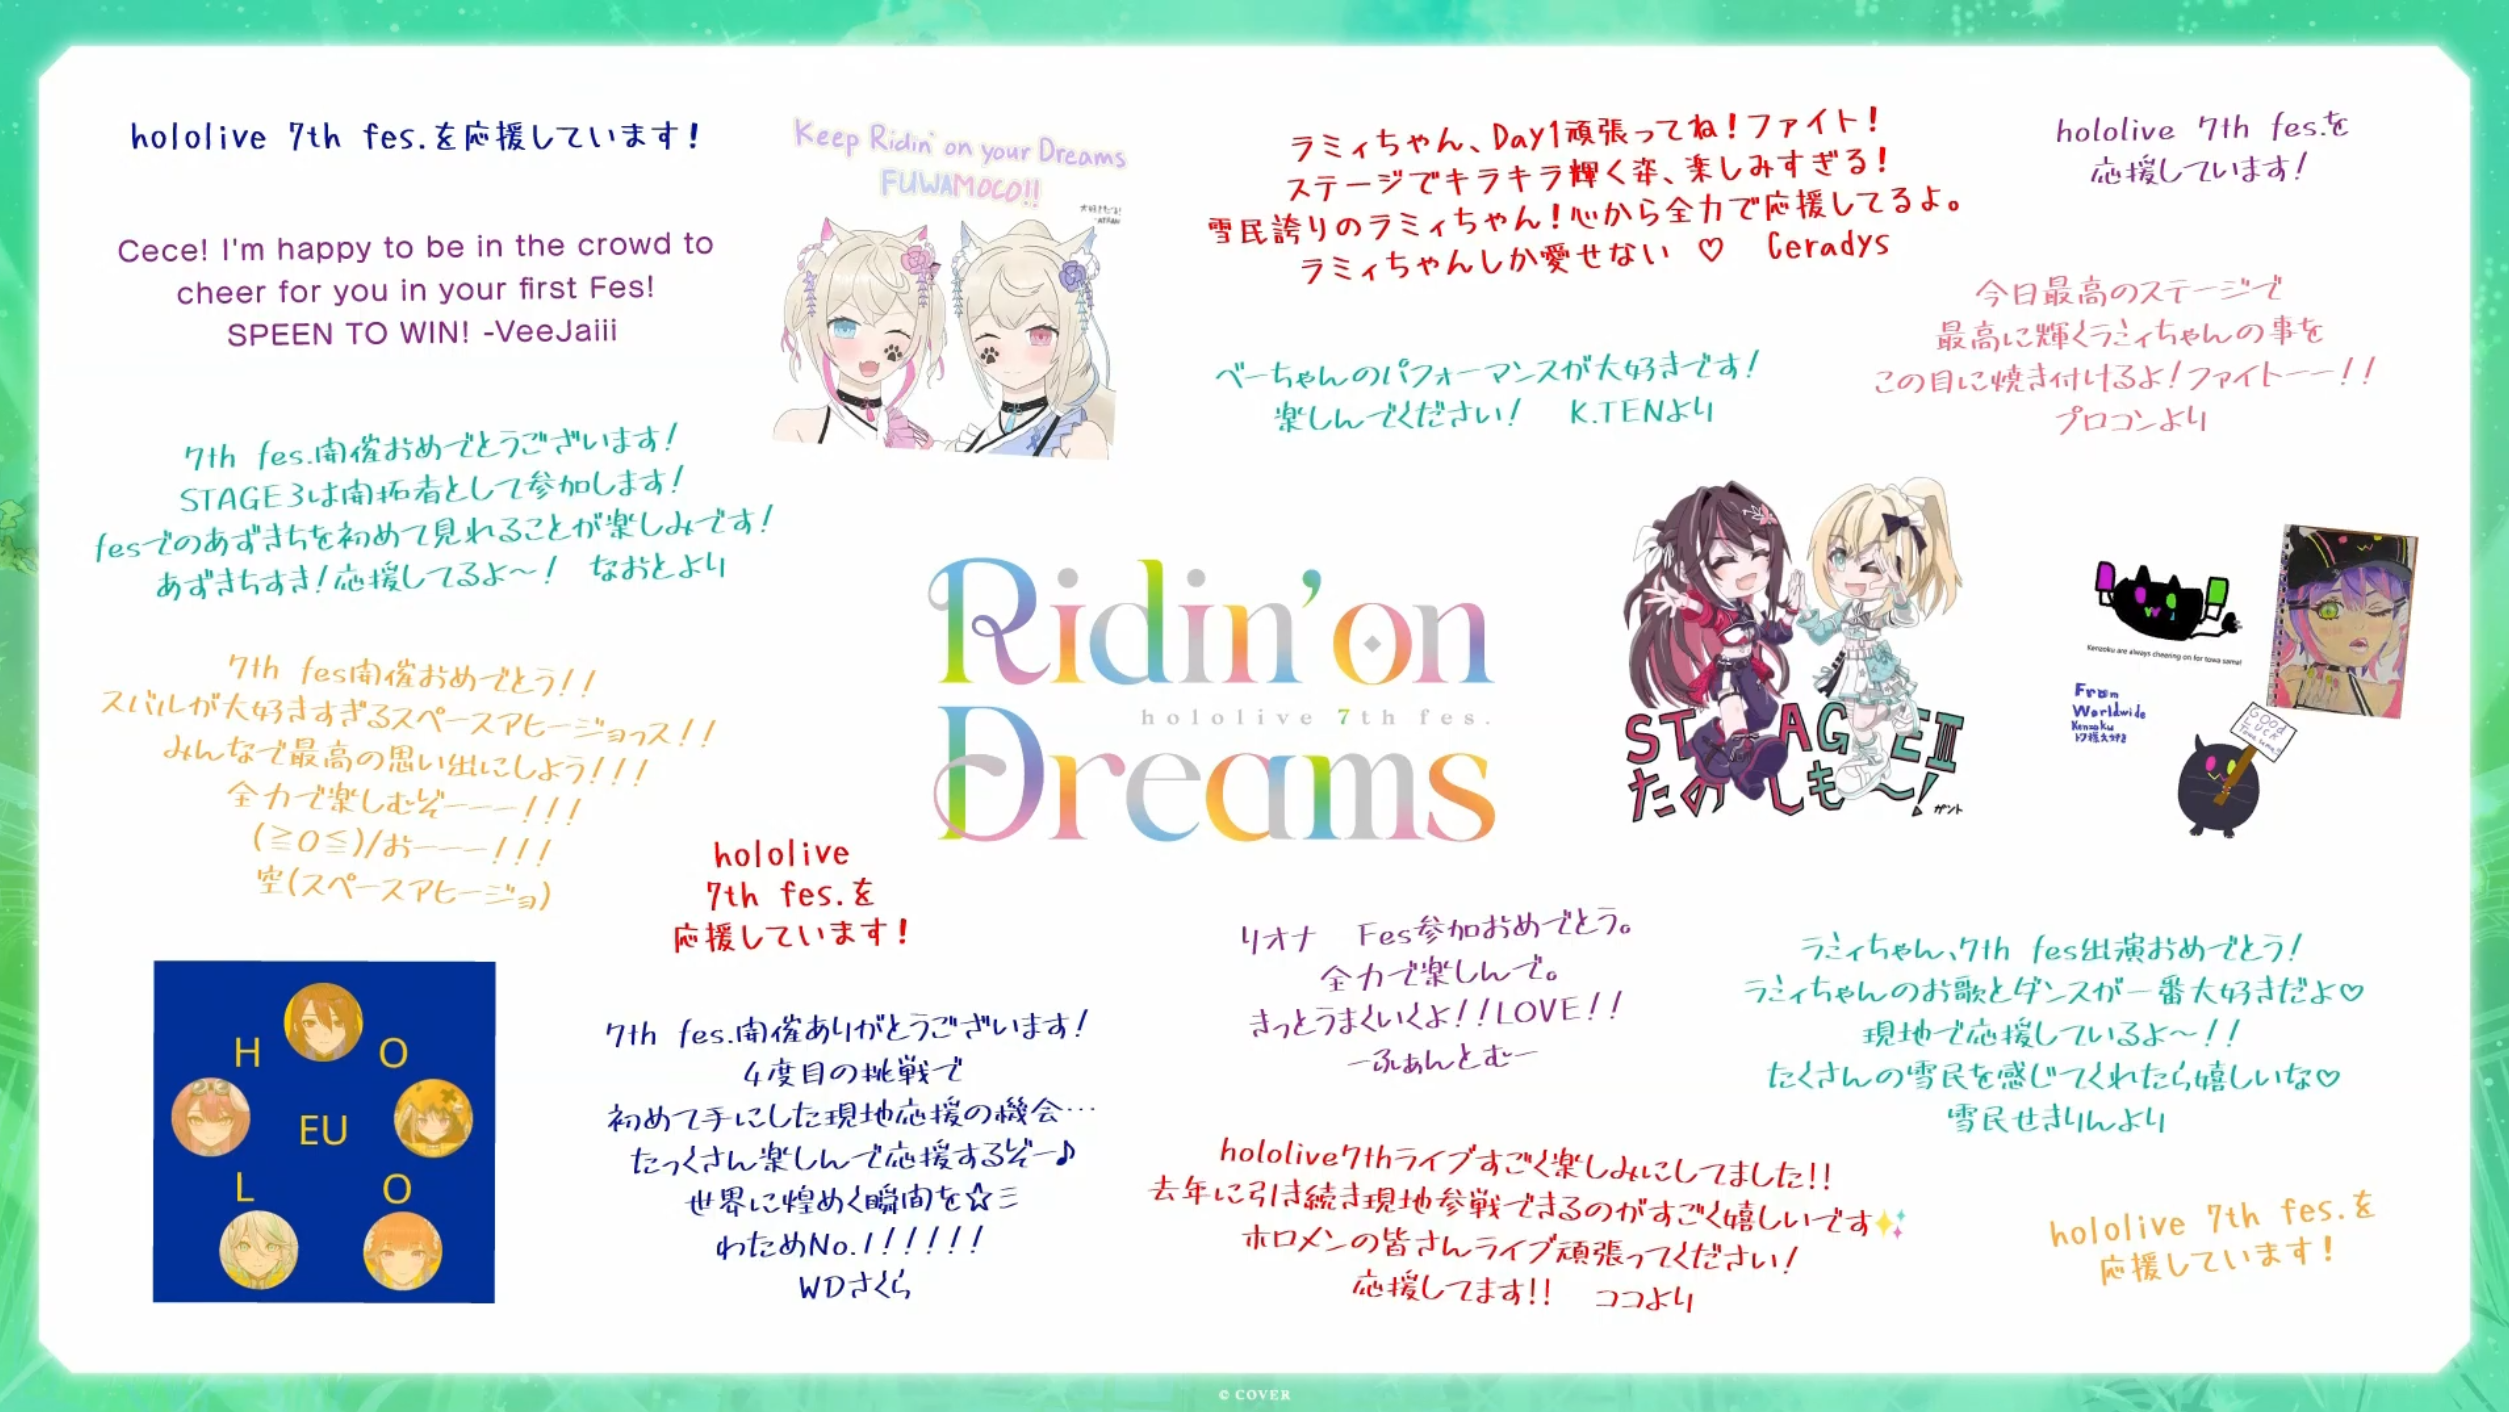 hololive 7th fes.を応援しています！
Cece! I'm happy to be in the crowd to
cheer for you in your first Fes!
SPEEN TO WIN! -VeeJaiii
Keep Ridin' on your Dreams
FUWAMOCO!!
ラミィちゃん、Day1頑張ってね！ファイト！
ステージでキラキラ輝く姿、楽しみすぎる！
雪民誇りのラミィちゃん！心から全力で応援してるよ。
ラミィちゃんしか愛せない ♡ Ceradys
hololive 7th fes.を
応援しています！
今日最高のステージで
最高に輝くラミィちゃんの事を
この目に焼き付けるよ！ファイトーー！！
プロコンより
べーちゃんのパフォーマンスが大好きです！
楽しんでください！ K.TENより
7th fes.開催おめでとうございます！
STAGE3は開拓者として参加します！
fesでのあずきちを初めて見れることが楽しみです！
あずきちすき！応援してるよ〜！ なおとより
7th fes開催おめでとう！！
スバルが大好きすぎるスペースアヒージョっス！！
みんなで最高の思い出にしよう！！！
全力で楽しむぞーーー！！！
(≧O≦)/おーーー！！！
空(スペースアヒージョ)
Ridin'on
hololive 7th fes.
Dreams
STAGEⅢ
たのしも〜！
ガント
Kenzoku are always cheering on for towa sama!
From
Worldwide
Kenzoku
GOOD
LUCK
Towa sama!!
hololive
7th fes.を
応援しています！
H O
EU
L O
7th fes.開催ありがとうございます！
4度目の挑戦で
初めて手にした現地応援の機会…
たっくさん楽しんで応援するぞー♪
世界に煌めく瞬間を☆ミ
わためNo.1！！！！！
WDさくら
リオナ Fes参加おめでとう。
全力で楽しんで。
きっとうまくいくよ！！LOVE！！
ーふぁんとむー
ラミィちゃん、7th fes出演おめでとう！
ラミィちゃんのお歌とダンスが一番大好きだよ♡
現地で応援しているよ〜！！
たくさんの雪民を感じてくれたら嬉しいな♡
雪民せきりんより
hololive7thライブすごく楽しみにしてました!!
去年に引き続き現地参戦できるのがすごく嬉しいです✨
ホロメンの皆さんライブ頑張ってください！
応援してます!! ココより
hololive 7th fes.を
応援しています！
© COVER